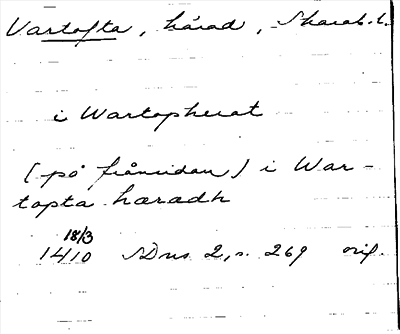 Vartofta, härad, Skarab.l.
i Wartopherat
(på frånsidan) i War-
topta hæradh
18/3
1410 SDns 2, s. 269 orig.